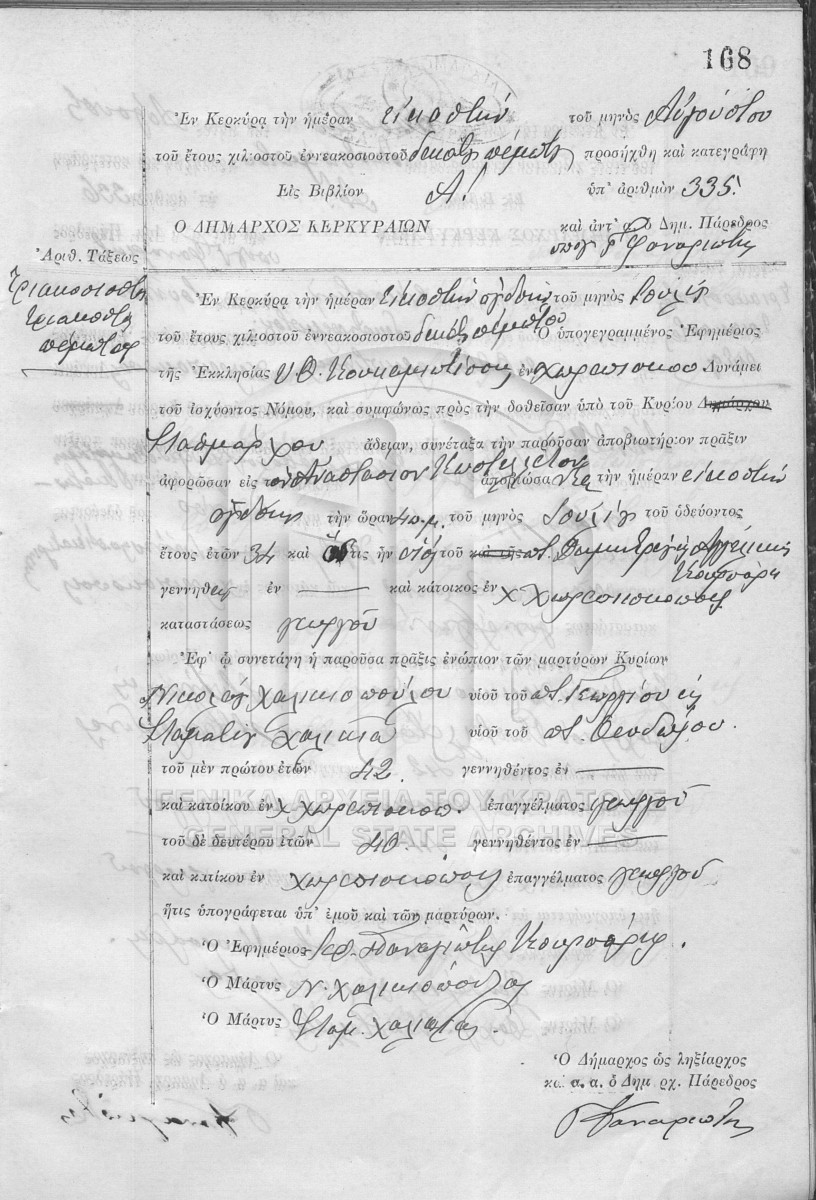 168
Ἐν Κερκύρᾳ τὴν ἡμέραν εἰκοστὴν τοῦ μηνὸς Αὐγούστου
τοῦ ἔτους χιλιοστοῦ ἐννεακοσιοστοῦ δεκάτου πέμπτου προσήχθη καὶ κατεγράφη
Εἰς Βιβλίον Α! ὑπ' ἀριθμὸν 335.
Ο ΔΗΜΑΡΧΟΣ ΚΕΡΚΥΡΑΙΩΝ καὶ ἀντ' αὐτοῦ ὁ Δημ. Πάρεδρος
Φαναριώτης
Ἀριθ. Τάξεως
Τριακοσιοστὴ
τριακοστὴ
πέμπτη
Ἐν Κερκύρᾳ τὴν ἡμέραν εἰκοστὴν ὀγδόην τοῦ μηνὸς Ἰουλίου
τοῦ ἔτους χιλιοστοῦ ἐννεακοσιοστοῦ δεκάτου πέμπτου Ὁ ὑπογεγραμμένος Ἐφημέριος
τῆς Ἐκκλησίας Υ.Θ. ἐν Δυνάμει
τοῦ ἰσχύοντος Νόμου, καὶ συμφώνως πρὸς τὴν δοθεῖσαν ὑπὸ τοῦ Κυρίου Δημάρχου
Σταθμάρχου ἄδειαν, συνέταξα τὴν παροῦσαν ἀποβιωτήριον πρᾶξιν
ἀφορῶσαν εἰς τὸν Ἀναστάσιον ἀποβιώσαντα τὴν ἡμέραν εἰκοστὴν
ὀγδόην τὴν ὥραν 4 π.μ. τοῦ μηνὸς Ἰουλίου τοῦ ὁδεύοντος
ἔτους ἐτῶν 34 καὶ ὅστις ἦν υἱὸς τοῦ καὶ τῆς ποτ.
Κουρσάρη
γεννηθεὶς ἐν — καὶ κάτοικος ἐν χ. Χωρεπισκόπους
καταστάσεως γεωργοῦ
Ἐφ' ᾧ συνετάγη ἡ παροῦσα πρᾶξις ἐνώπιον τῶν μαρτύρων Κυρίων
Νικολάου Χαλικιοπούλου υἱοῦ τοῦ ποτ. Γεωργίου καὶ
Σταματίου Χαλικιᾶ υἱοῦ τοῦ ποτ. Θεοδώρου.
τοῦ μὲν πρώτου ἐτῶν 42. γεννηθέντος ἐν —
καὶ κατοίκου ἐν χ Χωρεπισκόπ. ἐπαγγέλματος γεωργοῦ
τοῦ δὲ δευτέρου ἐτῶν 40. γεννηθέντος ἐν —
καὶ κατοίκου ἐν Χωρεπισκόπους ἐπαγγέλματος γεωργοῦ
ἥτις ὑπογράφεται ὑπ' ἐμοῦ καὶ τῶν μαρτύρων.
Ὁ Ἐφημέριος Παναγιώτης Κουρσάρης.
Ὁ Μάρτυς Ν. Χαλικιόπουλος
Ὁ Μάρτυς Σταμ. Χαλικιᾶς.
Ὁ Δήμαρχος ὡς ληξίαρχος
κα. α. α. ὁ Δημαρχ. Πάρεδρος
Φαναριώτης
ΓΕΝΙΚΑ ΑΡΧΕΙΑ ΤΟΥ ΚΡΑΤΟΥΣ
GENERAL STATE ARCHIVES